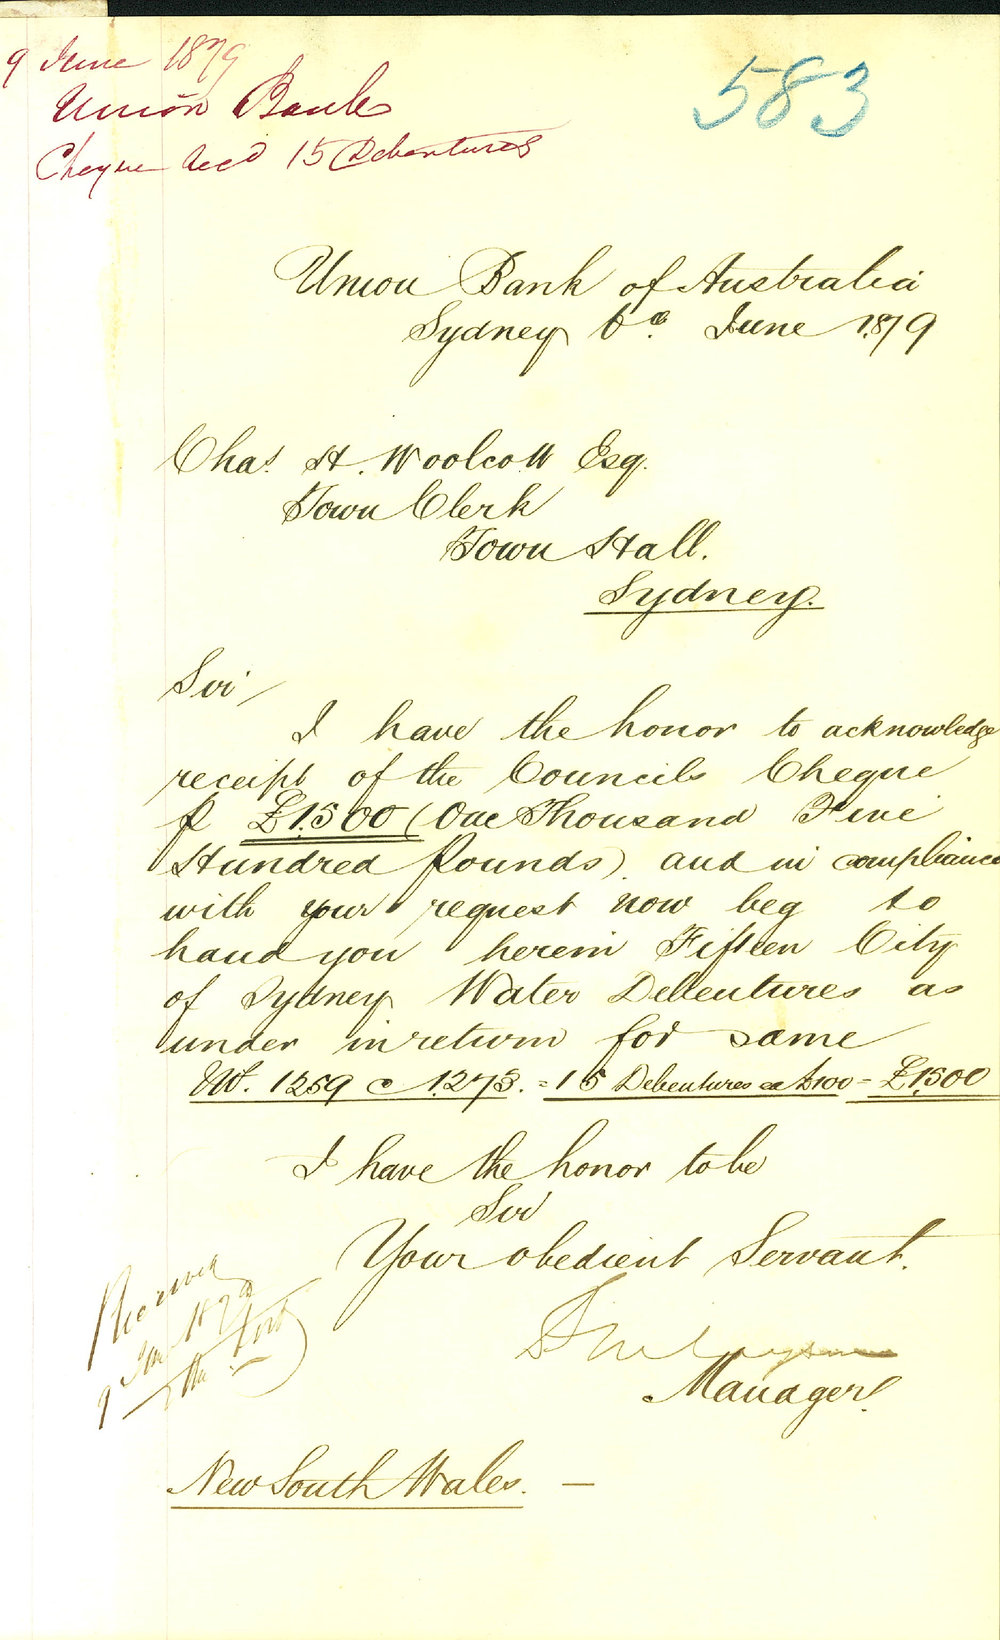 9 June 1879
Union Bank
Cheque Recd 15 Debentures
583
Union Bank of Australia
Sydney 6th June 1879
Chas. H. Woolcott Esq.
Town Clerk
Town Hall.
Sydney.
Sir
I have the honor to acknowledge
receipt of the Councils Cheque
p £1500 (One Thousand Five
Hundred Pounds) and in compliance
with your request now beg to
hand you herein Fifteen City
of Sydney Water Debentures as
under in return for same
No. 1259 @ 1273. = 15 Debentures ea £100 - £1500
I have the honor to be
Sir
Your obedient Servant.
Manager
Received
9 June 1879
New South Wales. —